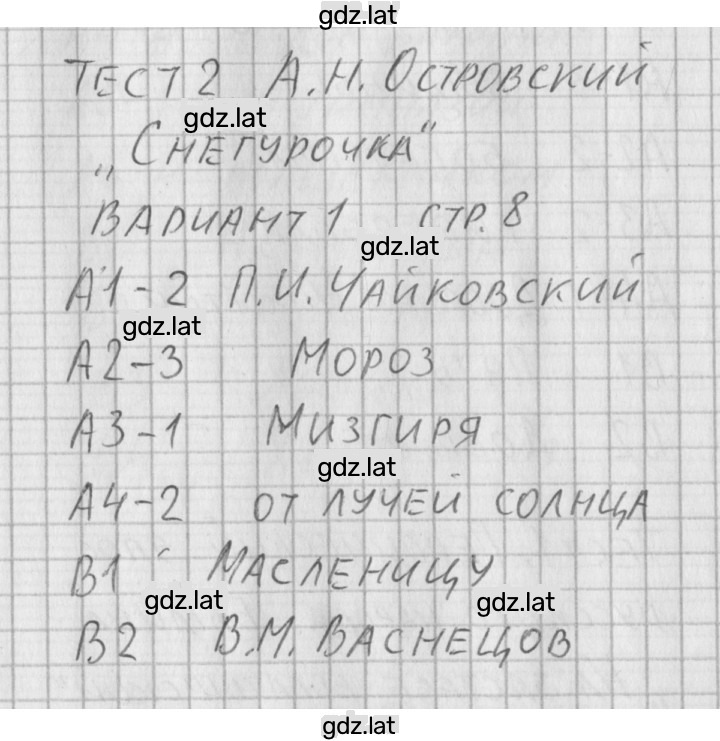 gdz.lat
ТЕСТ 2 А.Н. ОСТРОВСКИЙ
gdz.lat
„СНЕГУРОЧКА“
ВАРИАНТ 1 СТР. 8
gdz.lat
А1-2 П.И. ЧАЙКОВСКИЙ
gdz.lat
А2-3 МОРОЗ
А3-1 МИЗГИРЯ
gdz.lat
А4-2 ОТ ЛУЧЕЙ СОЛНЦА
В1 МАСЛЕНИЦУ
gdz.lat gdz.lat
В2 В.М. ВАСНЕЦОВ
gdz.lat